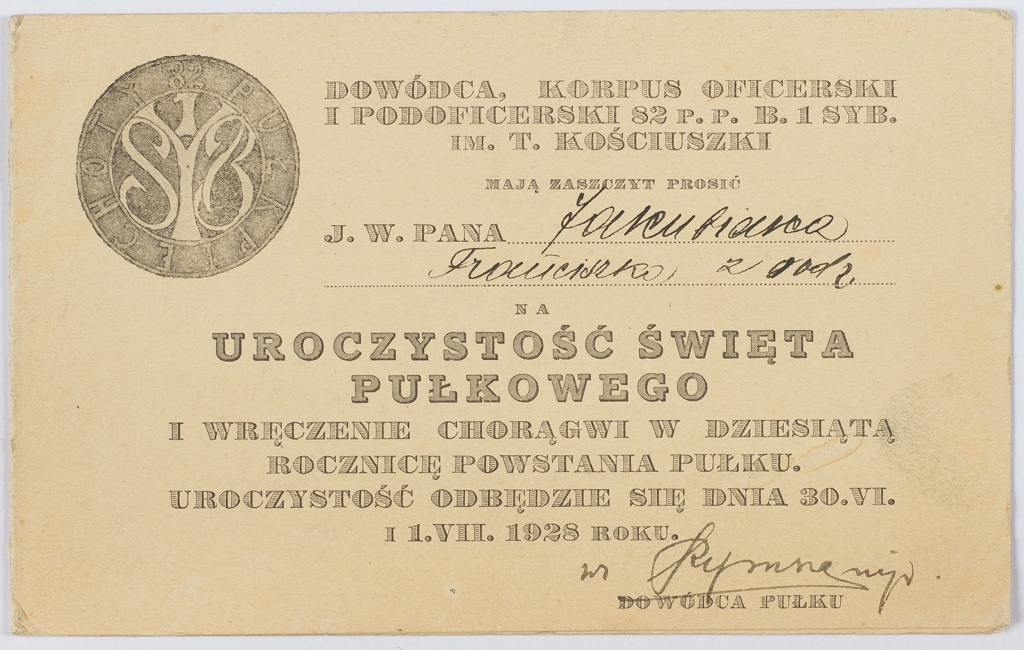 82 PUŁK PIECHOTY
1 SYB
DOWÓDCA, KORPUS OFICERSKI
I PODOFICERSKI 82 P. P. B. 1 SYB.
IM. T. KOŚCIUSZKI
MAJĄ ZASZCZYT PROSIĆ
J. W. PANA Jakubiaka
Franciszka z rodz.
NA
UROCZYSTOŚĆ ŚWIĘTA
PUŁKOWEGO
I WRĘCZENIE CHORĄGWI W DZIESIĄTĄ
ROCZNICĘ POWSTANIA PUŁKU.
UROCZYSTOŚĆ ODBĘDZIE SIĘ DNIA 30.VI.
I 1.VII. 1928 ROKU.
DOWÓDCA PUŁKU